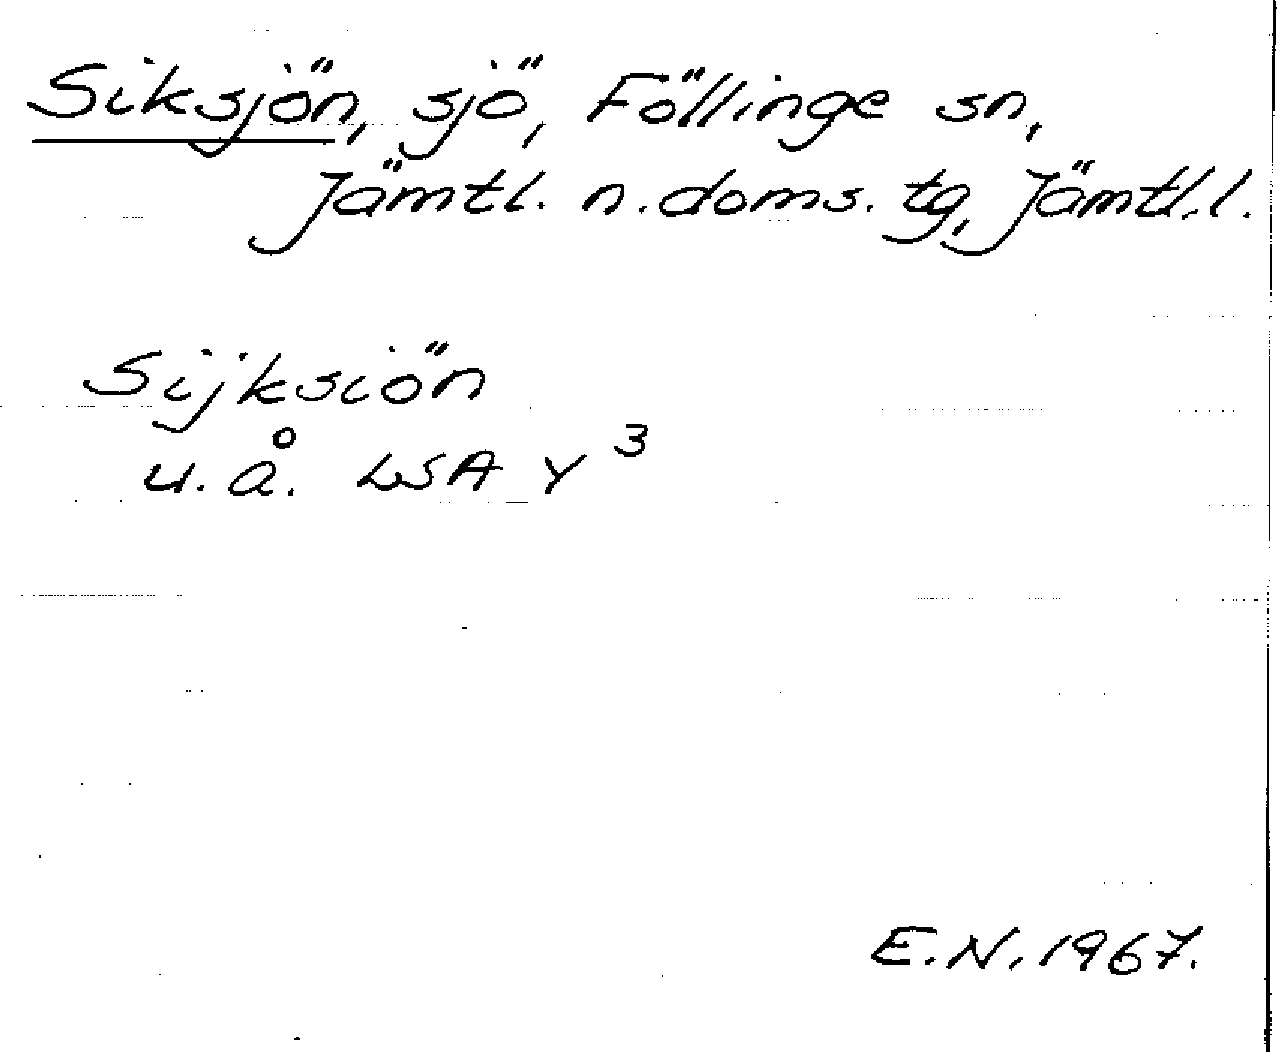 Siksjön, sjö, Föllinge sn,
Jämtl. n. doms. tg, Jämtl. l.
Sijksiön
u. å. LSA Y 3
E. N. 1967.